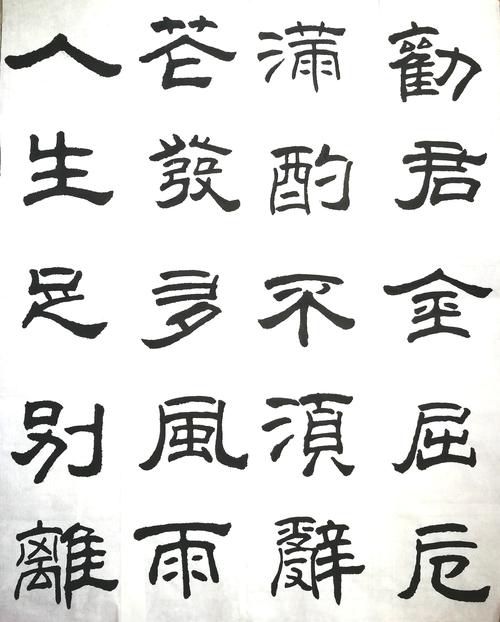 勸君金屈卮
滿酌不須辭
花發多風雨
人生足別離